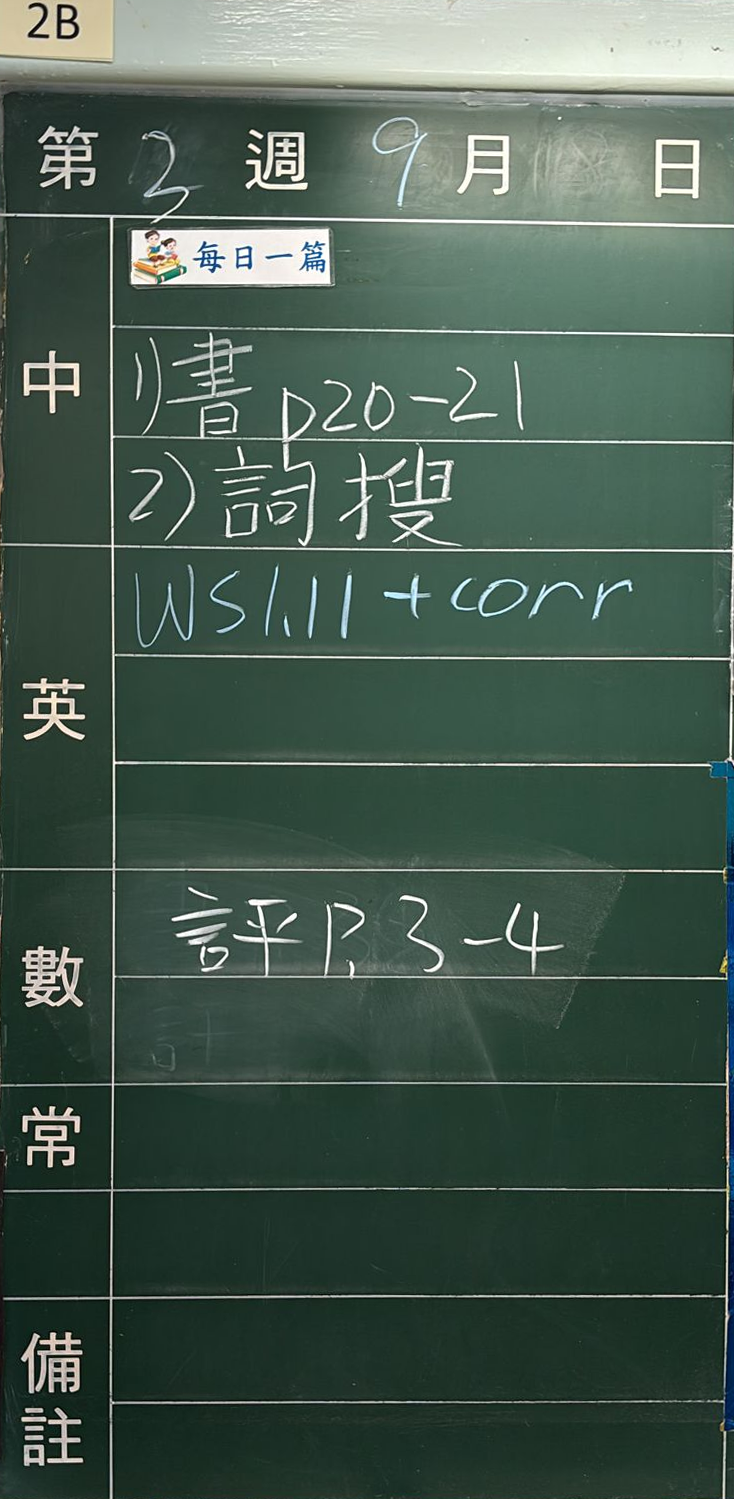 2B
第 3 週 9 月 日
每日一篇
中
1) 書 p20-21
2) 詞搜
英
WS1.11 + corr
數
評 P.3-4
常
備註